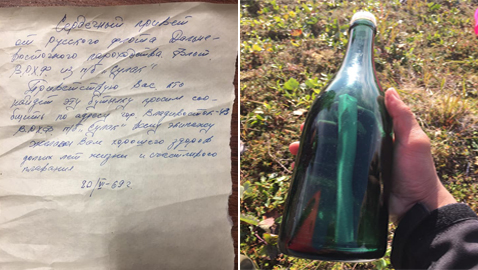 Сердечный привет
от русского флота Дальне-
восточного пароходства. Флот
ВРХФ из п/б „Сулак"
Приветствую Вас кто
найдет эту бутылку просим сооб-
щить по адресу гор Владивосток-43
ВРХФ п/б „Сулак" всему экипажу
желаем Вам хорошего здоровья
долгих лет жизни и счастливого
плавания
20/VI-69 г